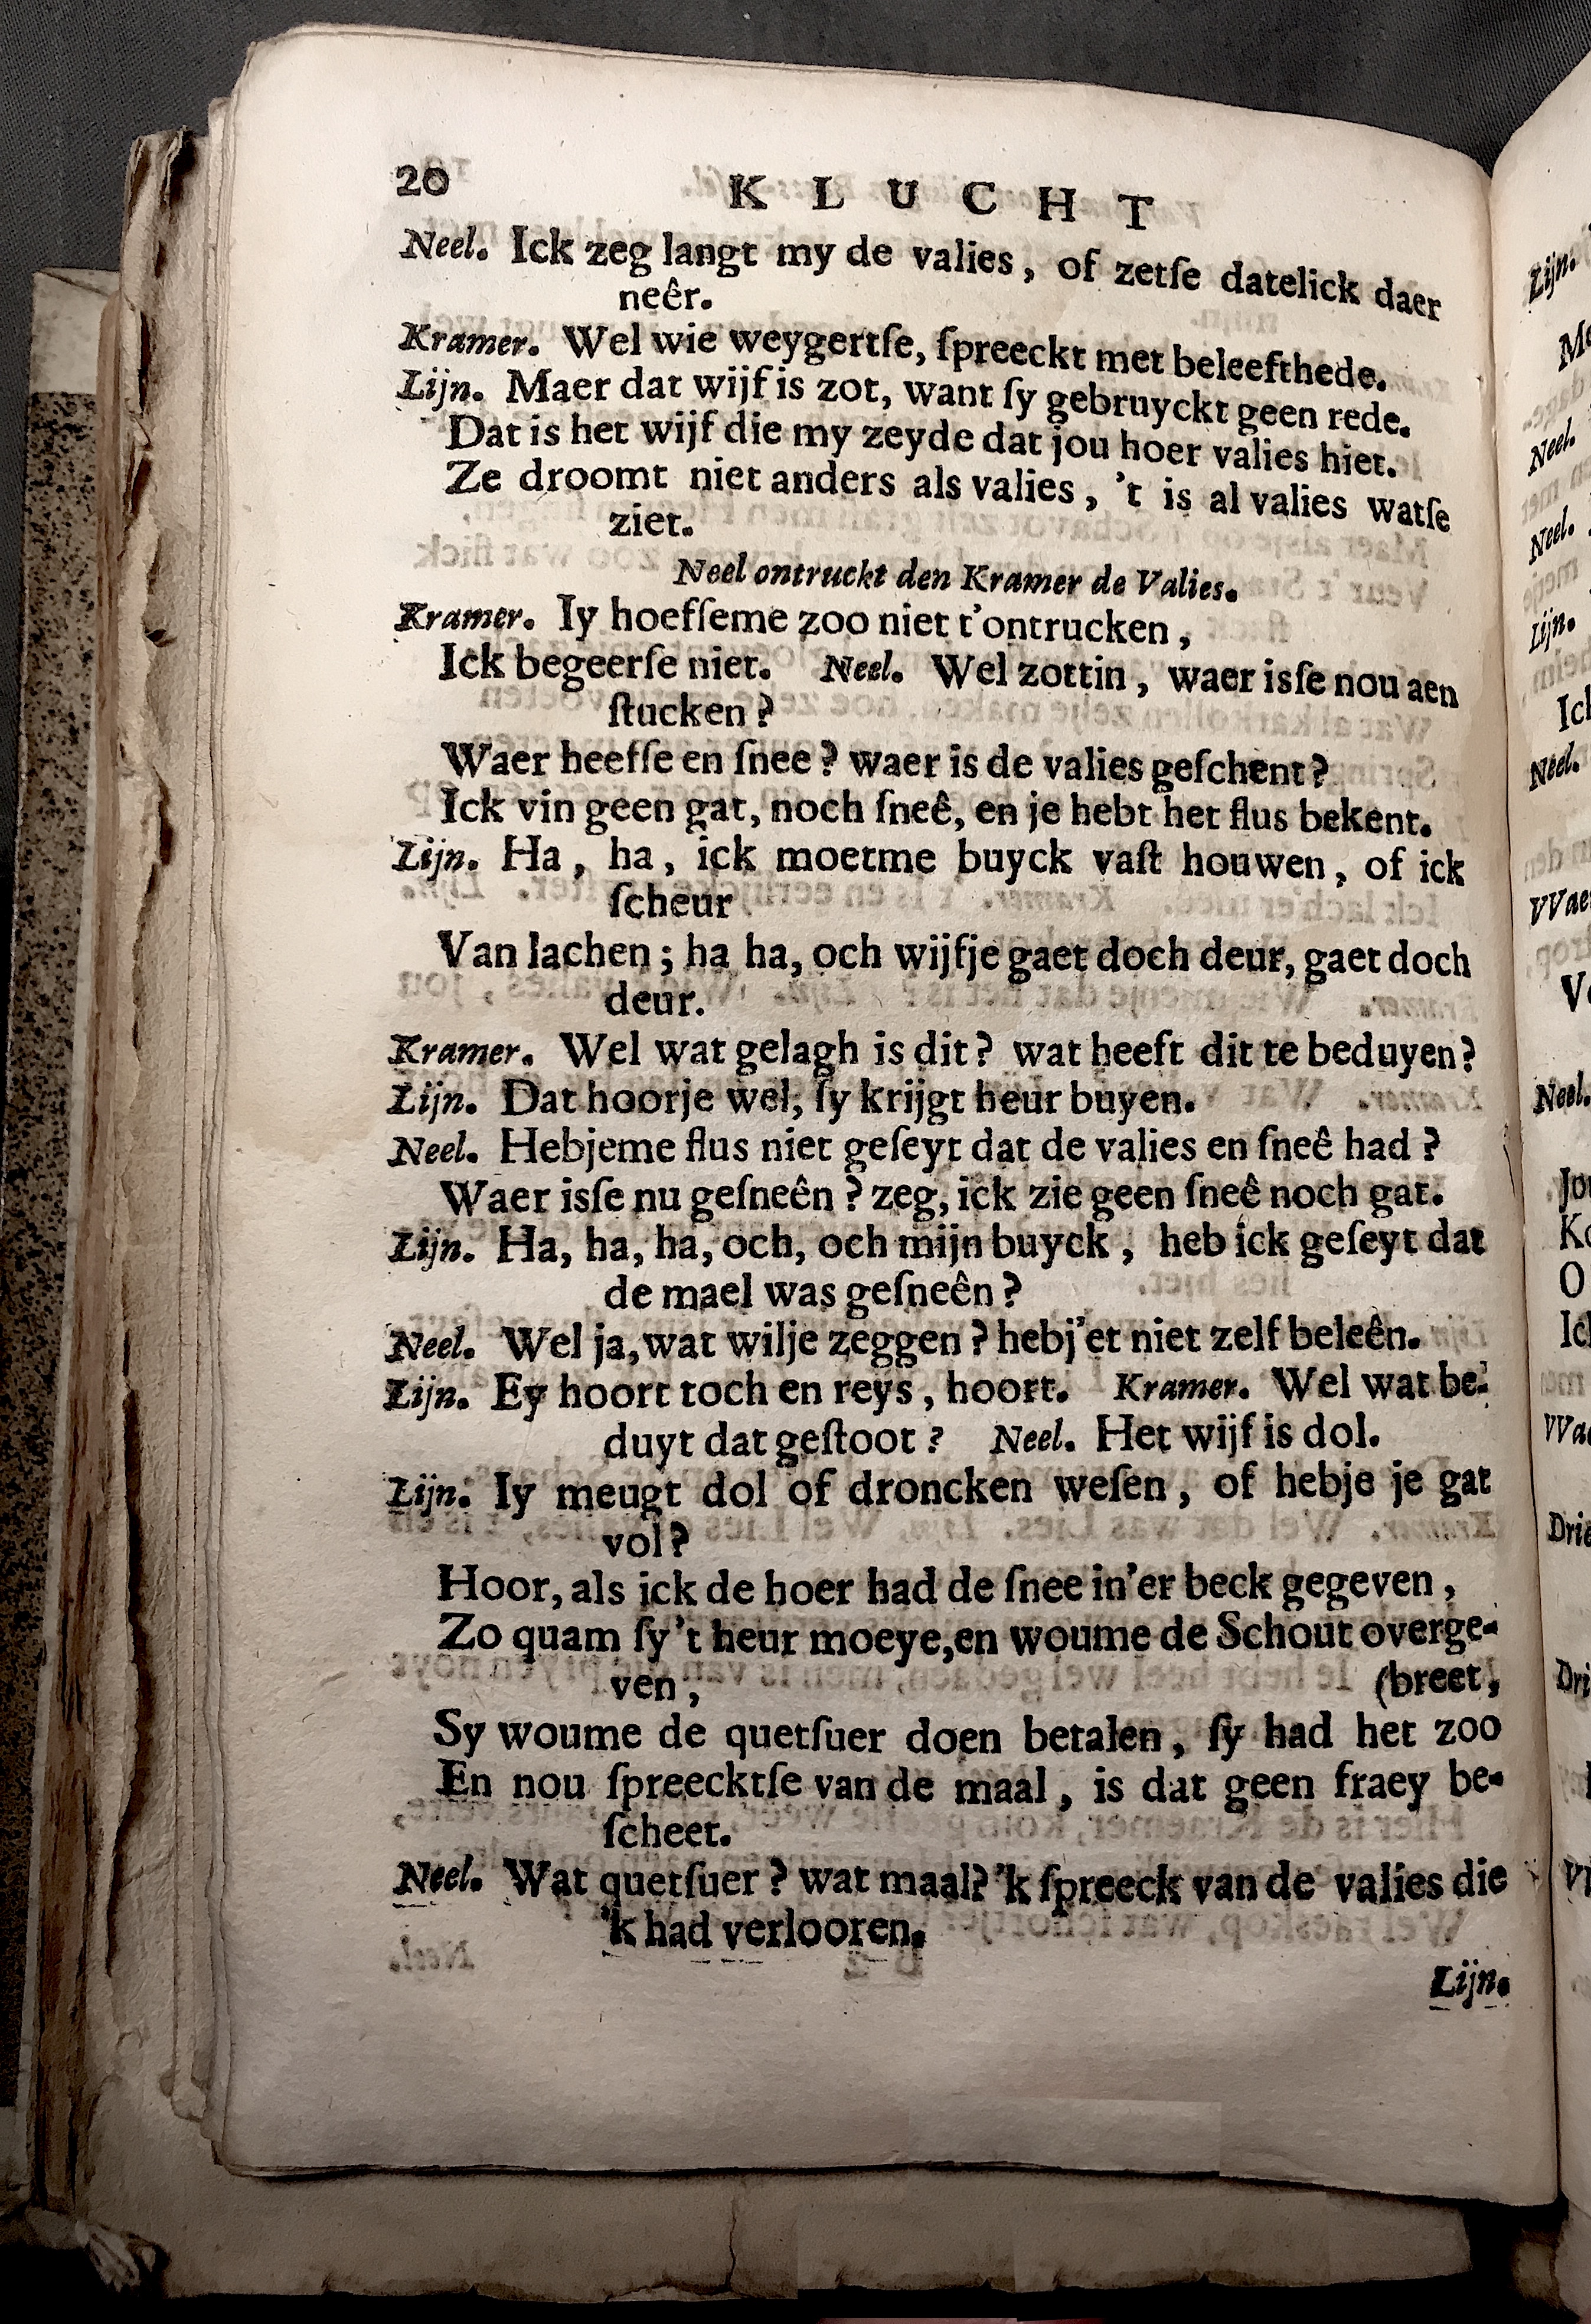 20 KLUCHT
Neel. Ick zeg langt my de valies, of zetſe datelick daer
neêr.
Kramer. Wel wie weygertſe, ſpreeckt met beleefthede.
Lijn. Maer dat wijf is zot, want ſy gebruyckt geen rede.
Dat is het wijf die my zeyde dat jou hoer valies hiet.
Ze droomt niet anders als valies, 't is al valies watſe
ziet.
Neel ontruckt den Kramer de Valies.
Kramer. Iy hoefſeme zoo niet t'ontrucken,
Ick begeerſe niet. Neel. Wel zottin, waer isſe nou aen
ſtucken?
Waer heefſe en ſnee? waer is de valies geſchent?
Ick vin geen gat, noch ſneê, en je hebt het flus bekent.
Lijn. Ha, ha, ick moetme buyck vaſt houwen, of ick
ſcheur
Van lachen; ha ha, och wijfje gaet doch deur, gaet doch
deur.
Kramer. Wel wat gelagh is dit? wat heeft dit te beduyen?
Lijn. Dat hoorje wel, ſy krijgt heur buyen.
Neel. Hebjeme flus niet geſeyt dat de valies en ſneê had?
Waer isſe nu geſneên? zeg, ick zie geen ſneê noch gat.
Lijn. Ha, ha, ha, och, och mijn buyck, heb ick geſeyt dat
de mael was geſneên?
Neel. Wel ja, wat wilje zeggen? hebj'et niet zelf beleên.
Lijn. Ey hoort toch en reys, hoort. Kramer. Wel wat be-
duyt dat geſtoot? Neel. Het wijf is dol.
Lijn. Iy meugt dol of droncken weſen, of hebje je gat
vol?
Hoor, als ick de hoer had de ſnee in'er beck gegeven,
Zo quam ſy 't heur moeye, en woume de Schout overge-
ven, (breet,
Sy woume de quetſuer doen betalen, ſy had het zoo
En nou ſpreecktſe van de maal, is dat geen fraey be-
ſcheet.
Neel. Wat quetſuer? wat maal? 'k ſpreeck van de valies die
'k had verlooren.
Lijn.
Lijn.
Me
Neel.
Neel.
Lijn.
Ick
Neel.
VVae
Neel.
Drie